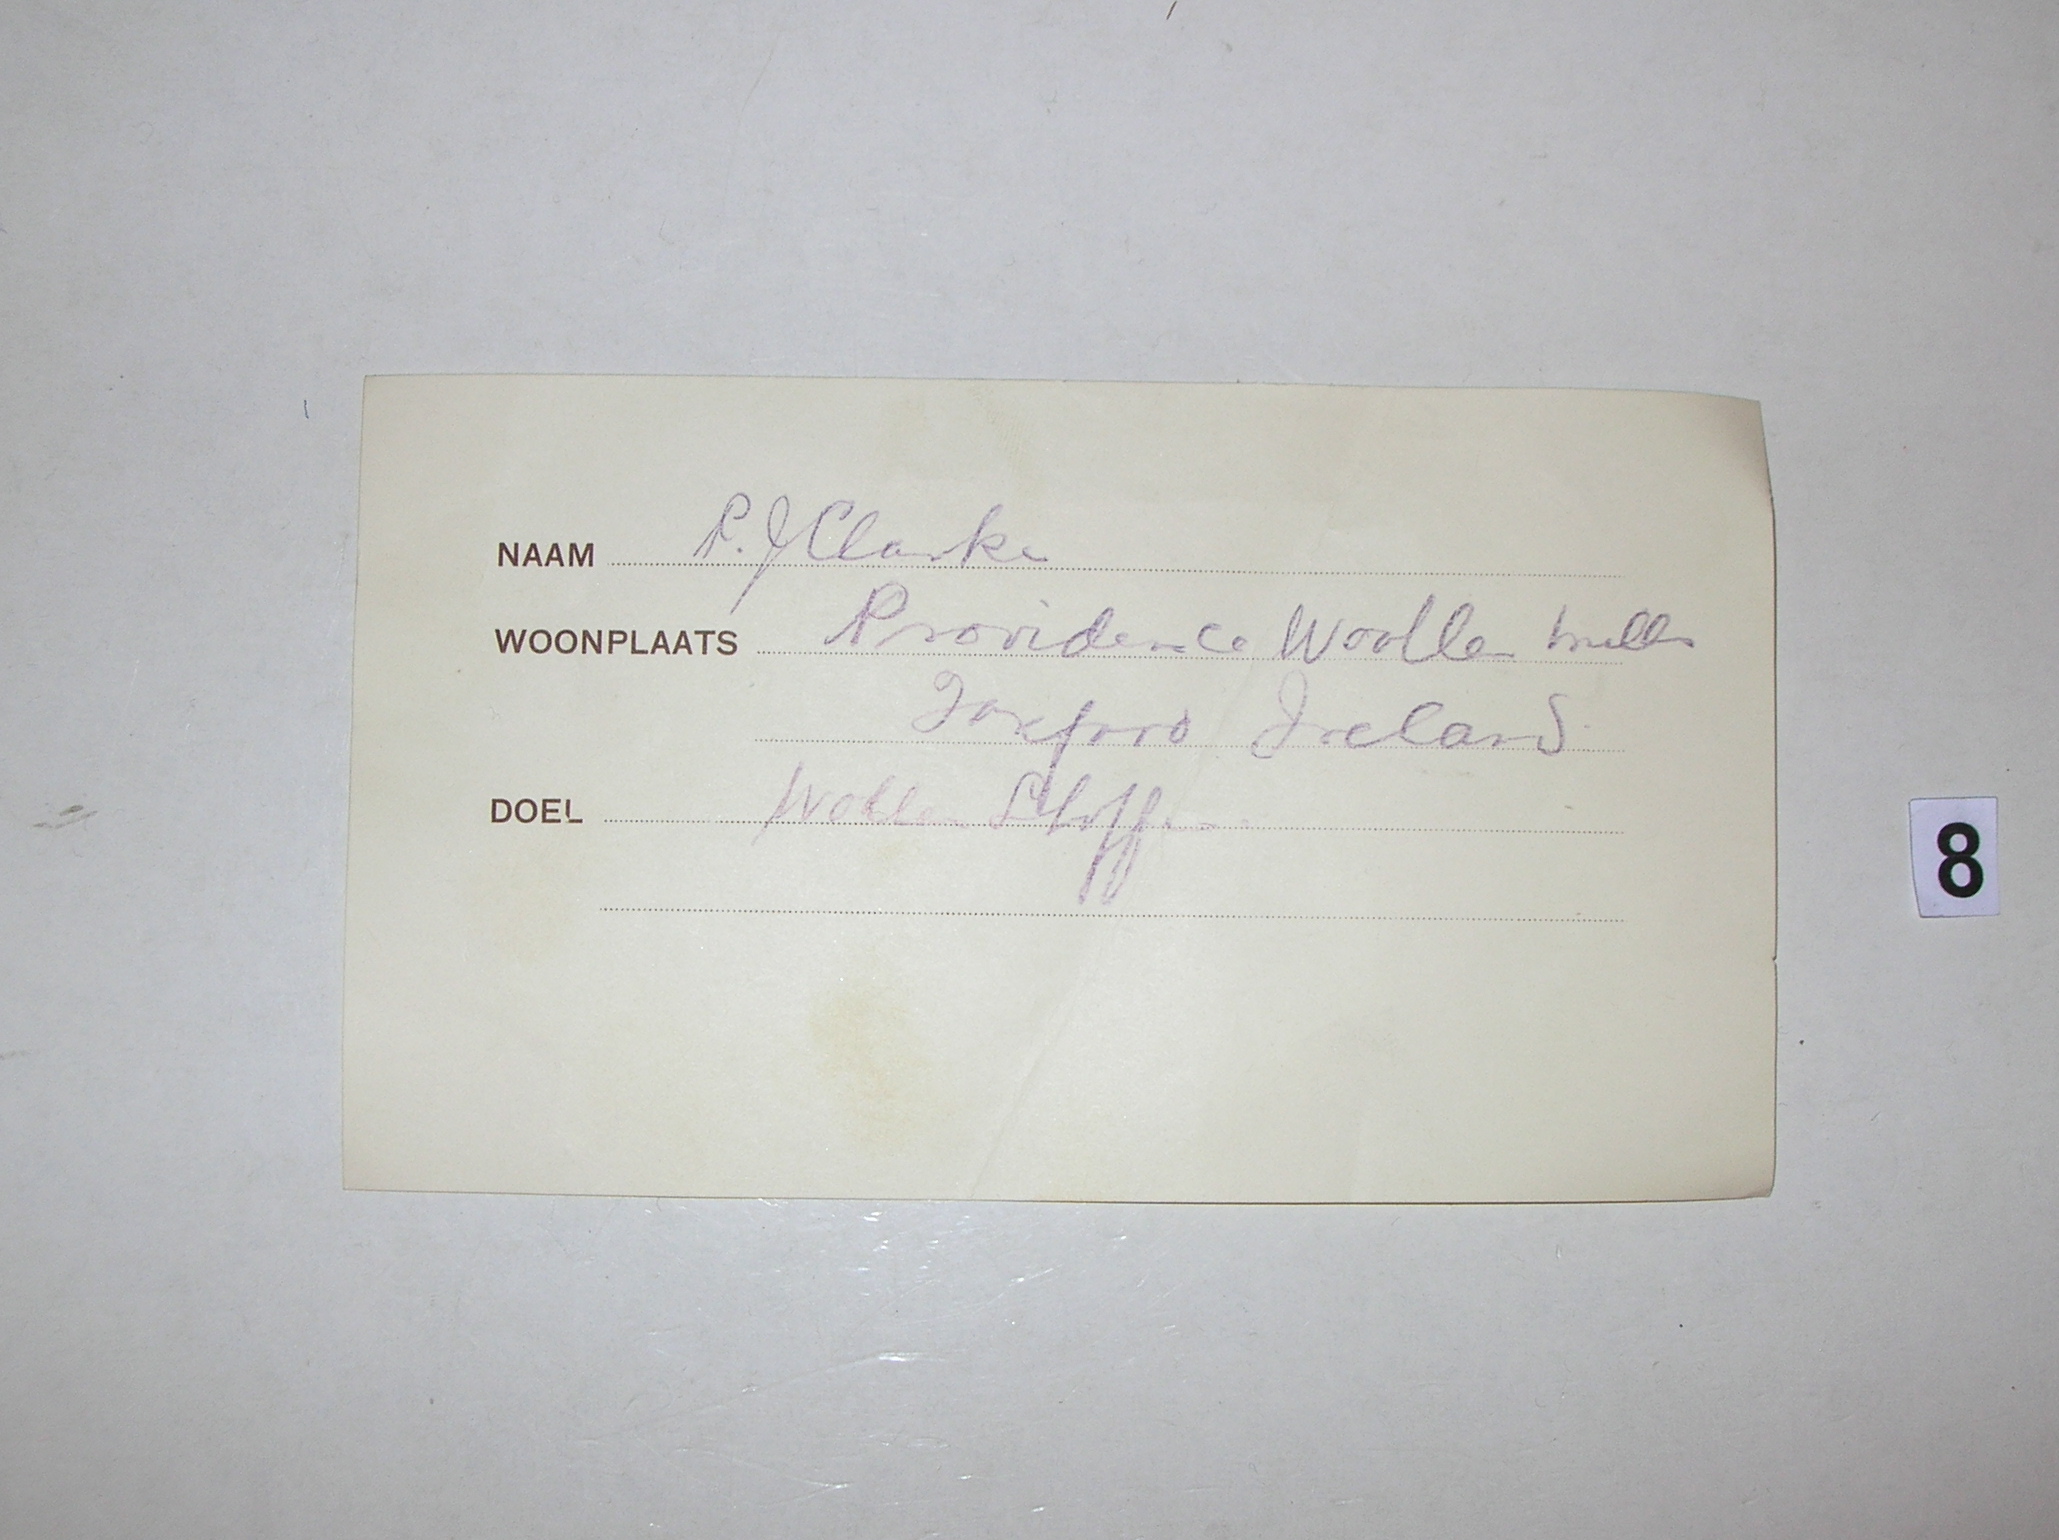 NAAM P. J Clarke
WOONPLAATS Providence Woollen Mills
Foxford Ireland
DOEL Wollen Stoffen
8